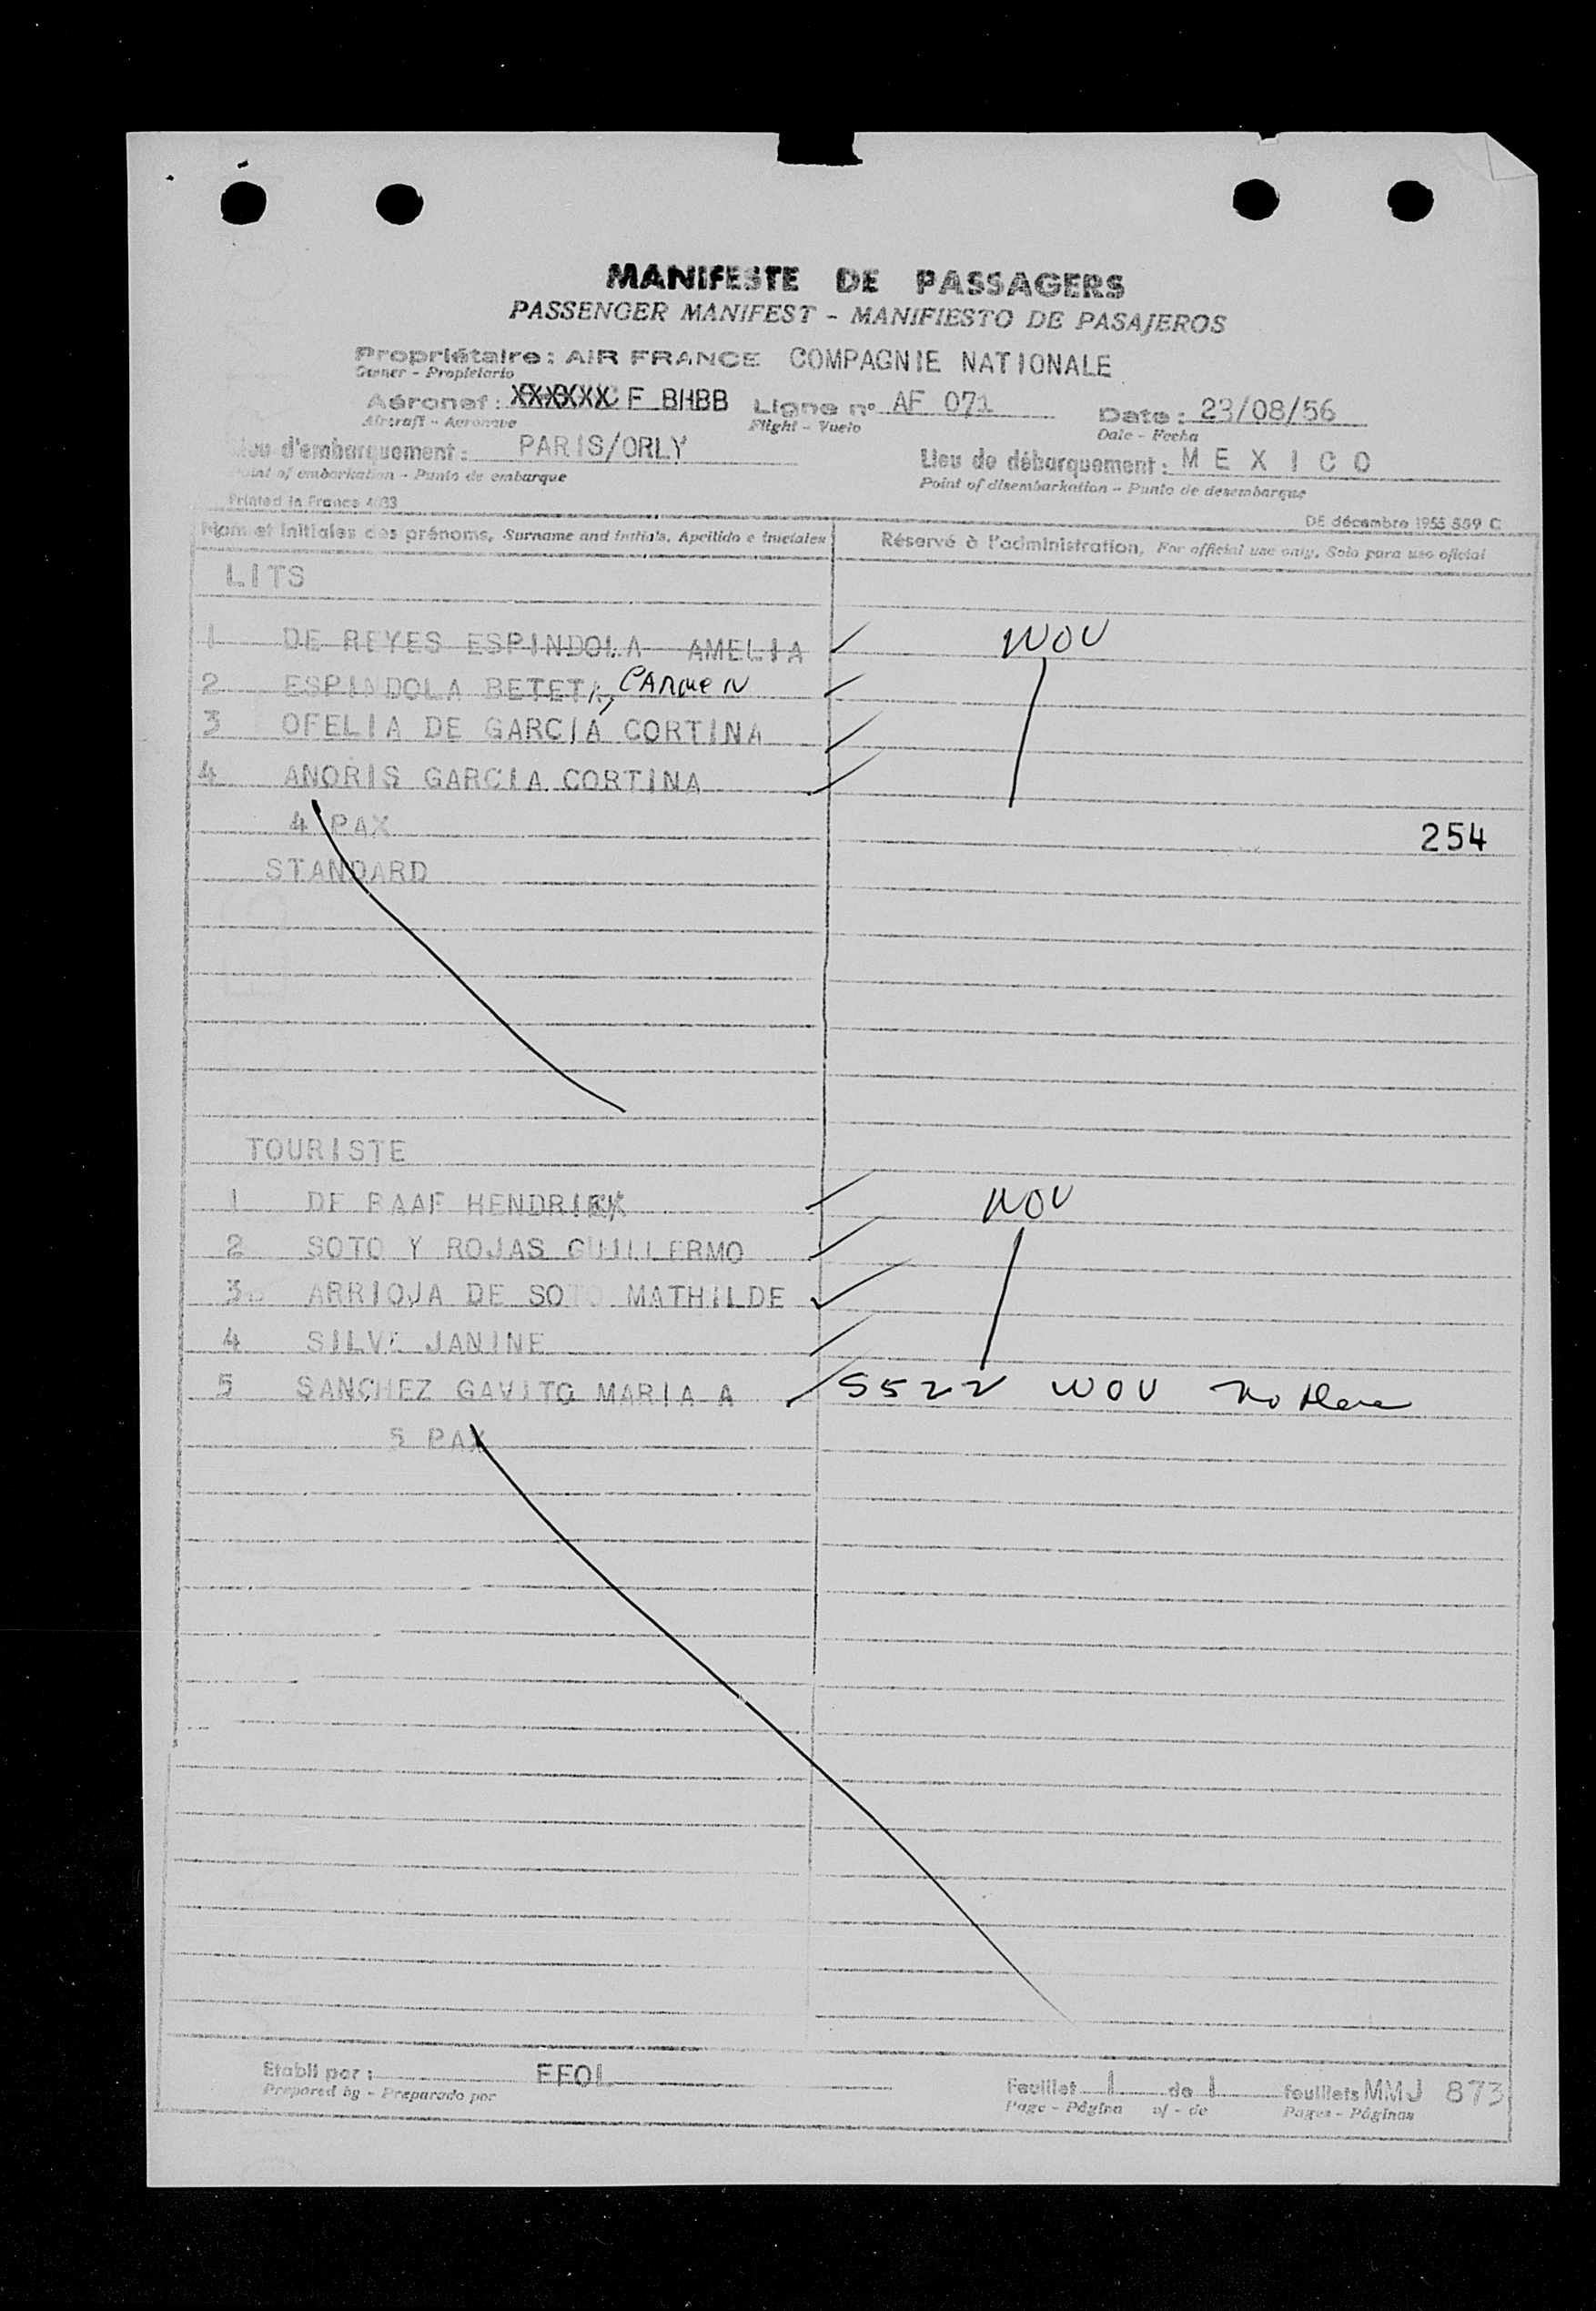 MANIFESTE DE PASSAGERS
PASSENGER MANIFEST - MANIFIESTO DE PASAJEROS
Propriétaire: AIR FRANCE COMPAGNIE NATIONALE
Owner - Propietario
Aéronef: XXXXXX F BHBB Ligne nº AF 071 Date: 23/08/56
Aircraft - Aeronave Flight - Vuelo Date - Fecha
Lieu d'embarquement: PARIS/ORLY Lieu de débarquement: M E X I C O
Point of embarkation - Punto de embarque Point of disembarkation - Punto de desembarque
Printed in France 4033 DE décembre 1955 559 C
Nom et initiales des prénoms, Surname and initials, Apellido e iniciales Réservé à l'administration, For official use only, Solo para uso oficial
LITS
1 DE REYES ESPINDOLA AMELIA WOV
2 ESPINDOLA BETETA, CARMEN
3 OFELIA DE GARCIA CORTINA
4 ANORIS GARCIA CORTINA
4 PAX 254
STANDARD
TOURISTE
1 DE RAAF HENDRIEK WOV
2 SOTO Y ROJAS GUILLERMO
3 ARRIOJA DE SOTO MATHILDE
4 SILVE JANINE
5 SANCHEZ GAVITO MARIA A S522 WOV
5 PAX
Etabli par: EFOL
Prepared by - Preparado por
Feuillet 1 de 1 feuillets MMJ 873
Page - Página of - de Pages - Páginas